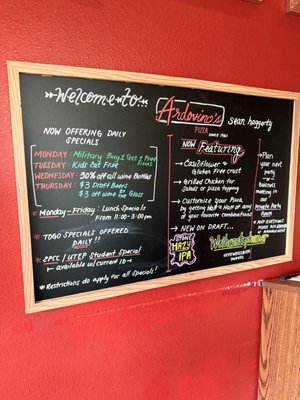 Welcome to...
Ardovino's
PIZZA
since 1961
Sean Haggerty
NOW OFFERING DAILY
SPECIALS
MONDAY: Military Buy 1 Get 1 Free
PIZZAS
TUESDAY: Kids Eat Free
WEDNESDAY: 50% off all wine Bottles
THURSDAY: $3 Draft Beers
$3 off wine BY THE Glass
* Monday-Friday: Lunch Specials
From 11:00-3:00 pm
* TOGO SPECIALS OFFERED
DAILY!!
* EPCC / UTEP Student Special
available w/current ID
*Restrictions do apply for all specials!
NOW Featuring
→ Cauliflower &
Gluten Free crust
→ Grilled Chicken for
Salads or pizza topping
→ Customize your Pizza
by getting Half & Half of any
of your favorite combinations!
→ NEW ON DRAFT...
HAZY
IPA
Plan
your next
party
or
business
meeting in
our
Private Party
Room